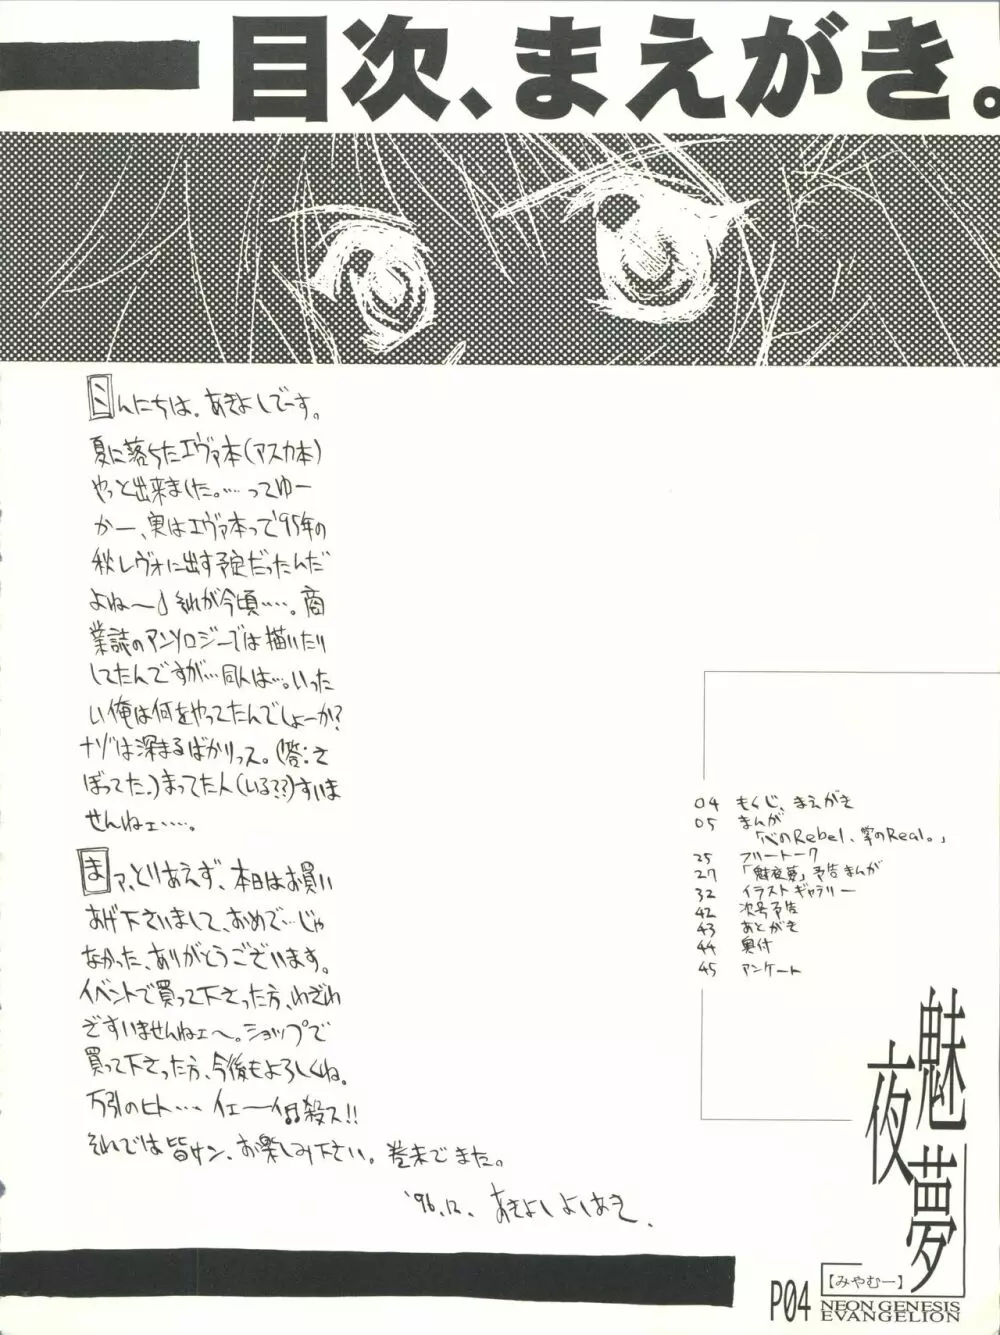 目次、まえがき。
こんにちは。あきよしでーす。
夏に落ちたエヴァ本(アスカ本)
やっと出来ました。…ってゆー
かー、実はエヴァ本って'95年の
秋レヴォに出す予定だったんだ
よね〜♪それが今頃……。商
業誌のアンソロジーでは描いたり
してたんですが…同人は…。いった
い俺は何をやってたんでしょーか?
ナゾは深まるばかりっス。(答:さ
ぼってた。)まってた人(いる??)すいま
せんねェ……。
まァ、とりあえず、本日はお買い
あげ下さいまして、おめで…じゃ
なかった、ありがとうございます。
イベントで買って下さった方、わざわ
ざすいませんねェ〜。ショップで
買って下さった方、今後もよろしくね。
万引のヒト…
殺ス!!
それでは皆サン、お楽しみ下さい。巻末でまた。
'96.12. あきよしよしあき.
04 もくじ、まえがき
05 まんが
「心のRebel、掌のReal。」
25 フリートーク
27 「魅夜夢」予告まんが
32 イラストギャラリー
42 次号予告
43 あとがき
44 奥付
45 アンケート
魅夜夢
【みやむー】
P04 NEON GENESIS
EVANGELION